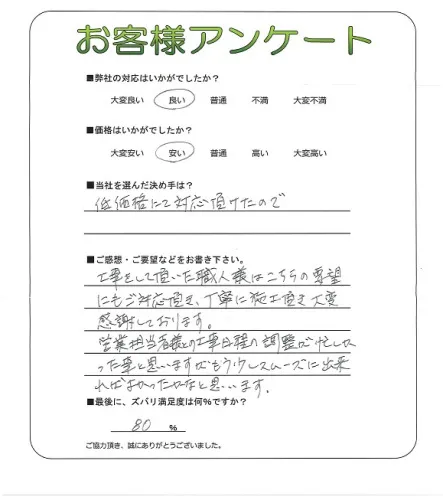 お客様アンケート
■弊社の対応はいかがでしたか？
大変良い 良い 普通 不満 大変不満
■価格はいかがでしたか？
大変安い 安い 普通 高い 大変高い
■当社を選んだ決め手は？
低価格にて対応頂けたので
■ご感想・ご要望などをお書き下さい。
工事をして頂いた職人様はこちらの要望
にもご対応頂き、丁寧に施工頂き大変
感謝しております。
営業担当者様との工事日程の調整が忙しか
った事と思いますがもう少しスムーズに出来
ればよかったかなと思います。
■最後に、ズバリ満足度は何%ですか？
80 %
ご協力頂き、誠にありがとうございました。